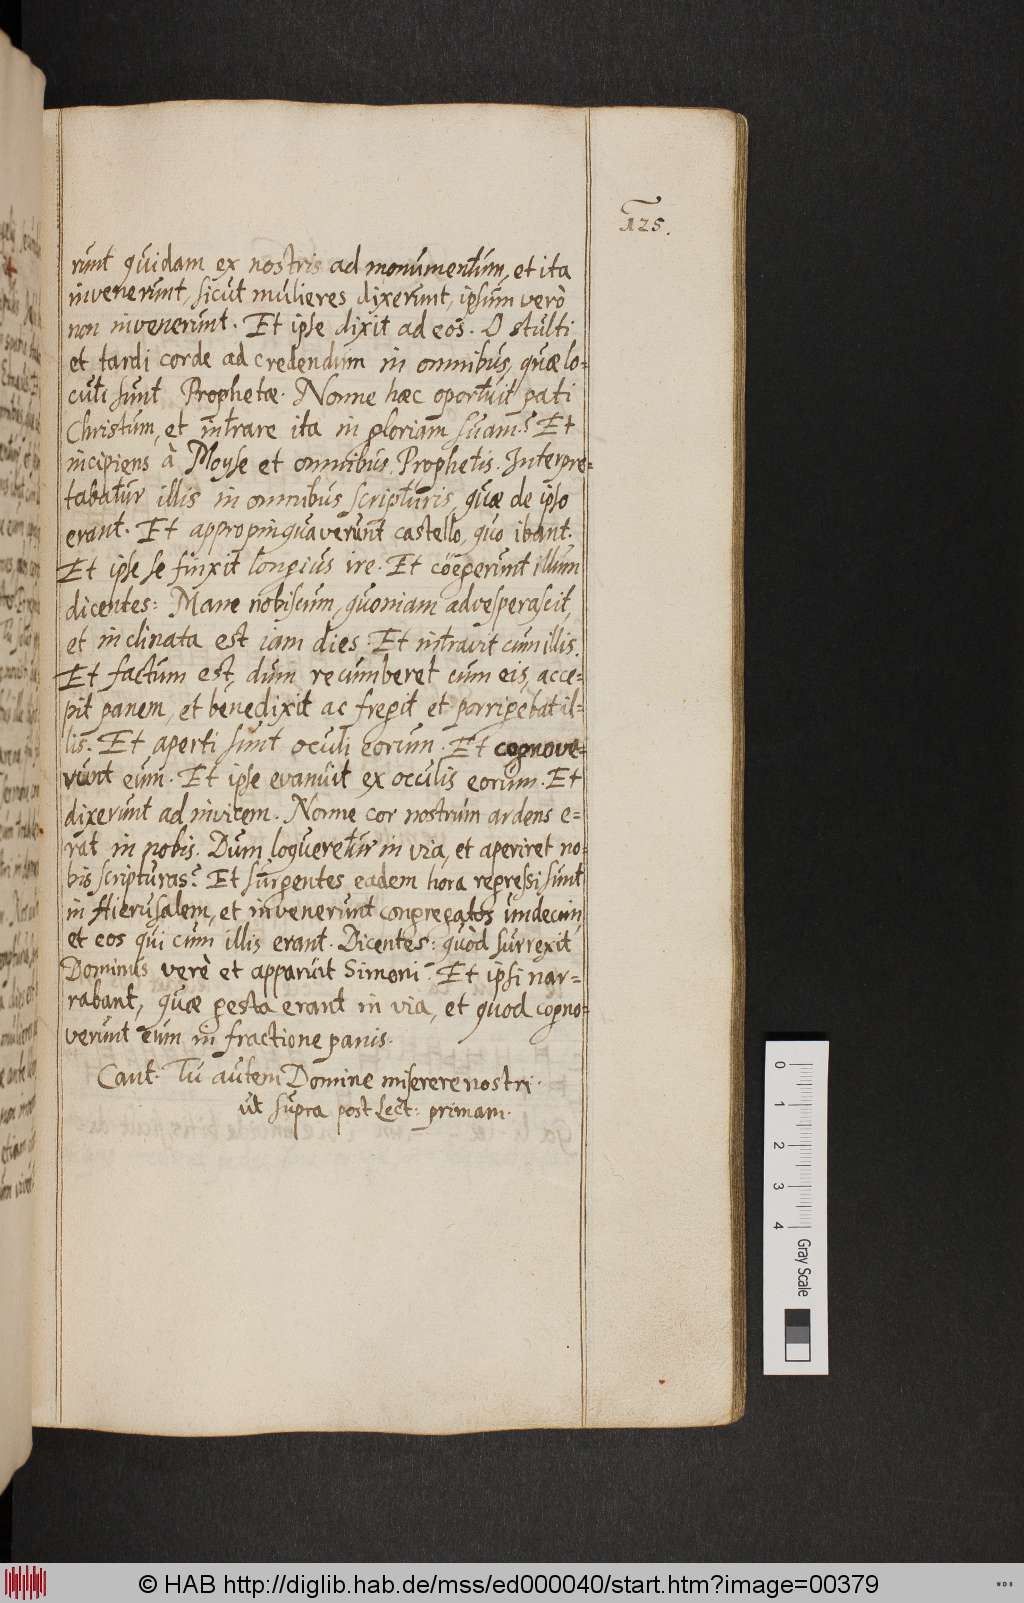 125.
runt quidam ex nostris ad monumentum, et ita
invenerunt, sicut mulieres dixerunt, ipsum verò
non invenerunt. Et ipse dixit ad eos. O stulti
et tardi corde ad credendum in omnibus, quæ lo=
cuti sunt Prophetæ. Nonne hæc oportuit pati
Christum, et intrare ita in gloriam suam? Et
incipiens à Moyse et omnibus Prophetis. Interpre=
tabatur illis in omnibus scripturis, quæ de ipso
erant. Et appropinquaverunt castello, quo ibant.
Et ipse se finxit longius ire. Et coëgerunt illum
dicentes: Mane nobiscum, quoniam advesperascit,
et inclinata est iam dies. Et intravit cum illis.
Et factum est, dum recumberet cum eis, acce=
pit panem, et benedixit ac fregit et porrigebat il=
lis. Et aperti sunt oculi eorum. Et cognove=
runt eum. Et ipse evanuit ex oculis eorum. Et
dixerunt ad invicem. Nonne cor nostrum ardens e=
rat in nobis. Dum loqueretur in via, et aperiret no=
bis scripturas? Et surgentes eadem hora regressi sunt
in Hierusalem, et invenerunt congregatos undecim,
et eos qui cum illis erant. Dicentes: quòd surrexit
Dominus verè et apparuit Simoni. Et ipsi nar=
rabant, quæ gesta erant in via, et quod cogno=
verunt eum in fractione panis.
Cant. Tu autem Domine miserere nostri.
ut supra post Lect: primam.
0 1 2 3 4 Gray Scale
© HAB http://diglib.hab.de/mss/ed000040/start.htm?image=00379